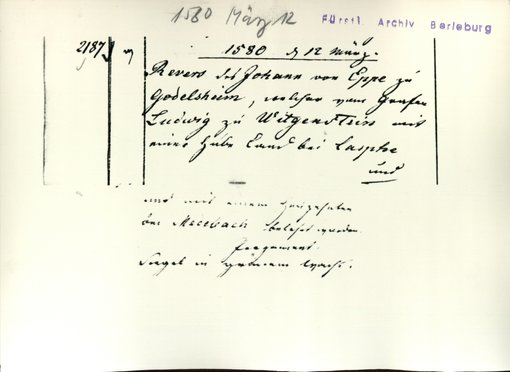 1580 März 12
Fürstl. Archiv Berleburg
2187
1580 12 März.
Revers des Johann von Eppe zu
Godelsheim, welcher vom Grafen
Ludwig zu Witgenstein mit
einer Hube Land bei Laasphe
und
und mit einem
bei belehnt worden.
Pergament.
Siegel in grünem Wachs.